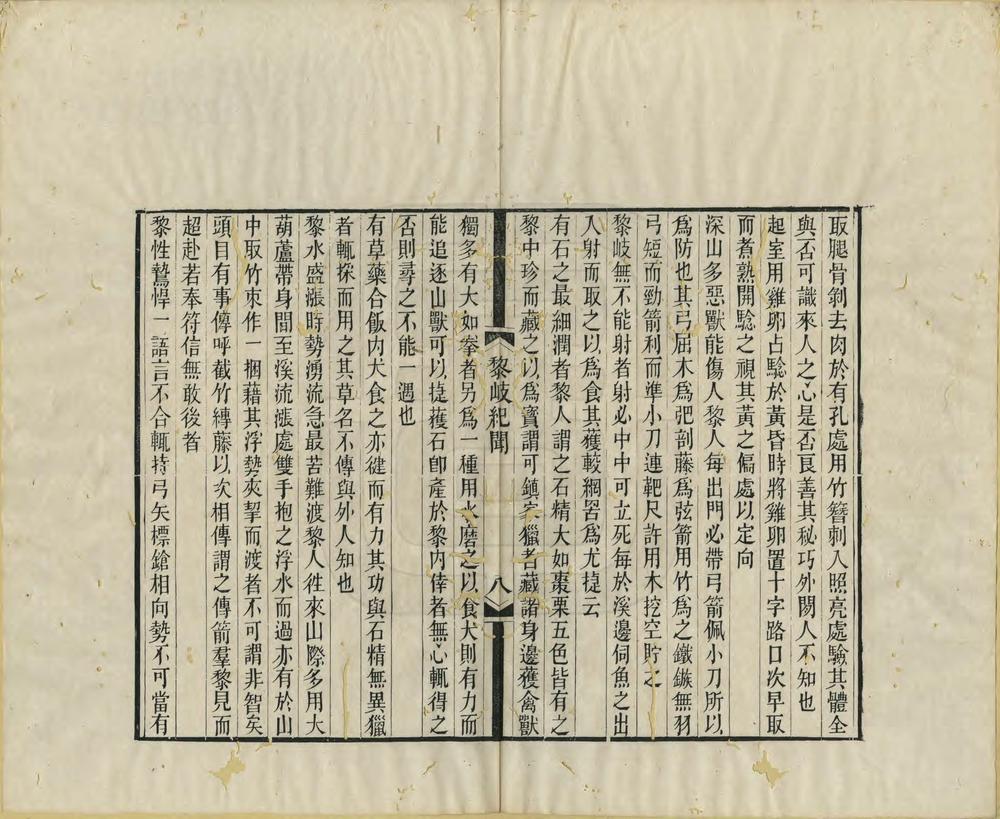 取腿骨剝去肉於有孔處用竹簪刺入照亮處驗其體全
與否可識來人之心是否良善其秘巧外閩人不知也
起室用雞卵占騐於黃昏時將雞卵置十字路口次早取
而煮熟開騐之視其黃之偏處以定向
深山多惡獸能傷人黎人每出門必帶弓箭佩小刀所以
爲防也其弓屈木爲弝剖藤爲弦箭用竹爲之鐵鏃無羽
弓短而勁箭利而準小刀連靶尺許用木挖空貯之
黎岐無不能射者射必中中可立死每於溪邊伺魚之出
入射而取之以爲食其獲較網罟爲尤㨗云
有石之最細潤者黎人謂之石精大如棗栗五色皆有之
黎中珍而藏之以爲寳謂可鎮家獵者藏諸身邊獲禽獸
黎岐紀聞
八
獨多有大如拳者另爲一種用水磨之以食犬則有力而
能追逐山獸可以㨗獲石卽產於黎內倖者無心輒得之
否則尋之不能一遇也
有草藥合飯內犬食之亦健而有力其功與石精無異獵
者輒採而用之其草名不傳與外人知也
黎水盛漲時勢湧流急最苦難渡黎人徃來山際多用大
葫蘆帶身間至溪流漲處雙手抱之浮水而過亦有於山
中取竹朿作一捆藉其浮勢夾挐而渡者不可謂非智矣
頭目有事傳呼截竹縛藤以次相傳謂之傳箭羣黎見而
超赴若奉符信無敢後者
黎性鷙悍一語言不合輒持弓矢標鎗相向勢不可當有